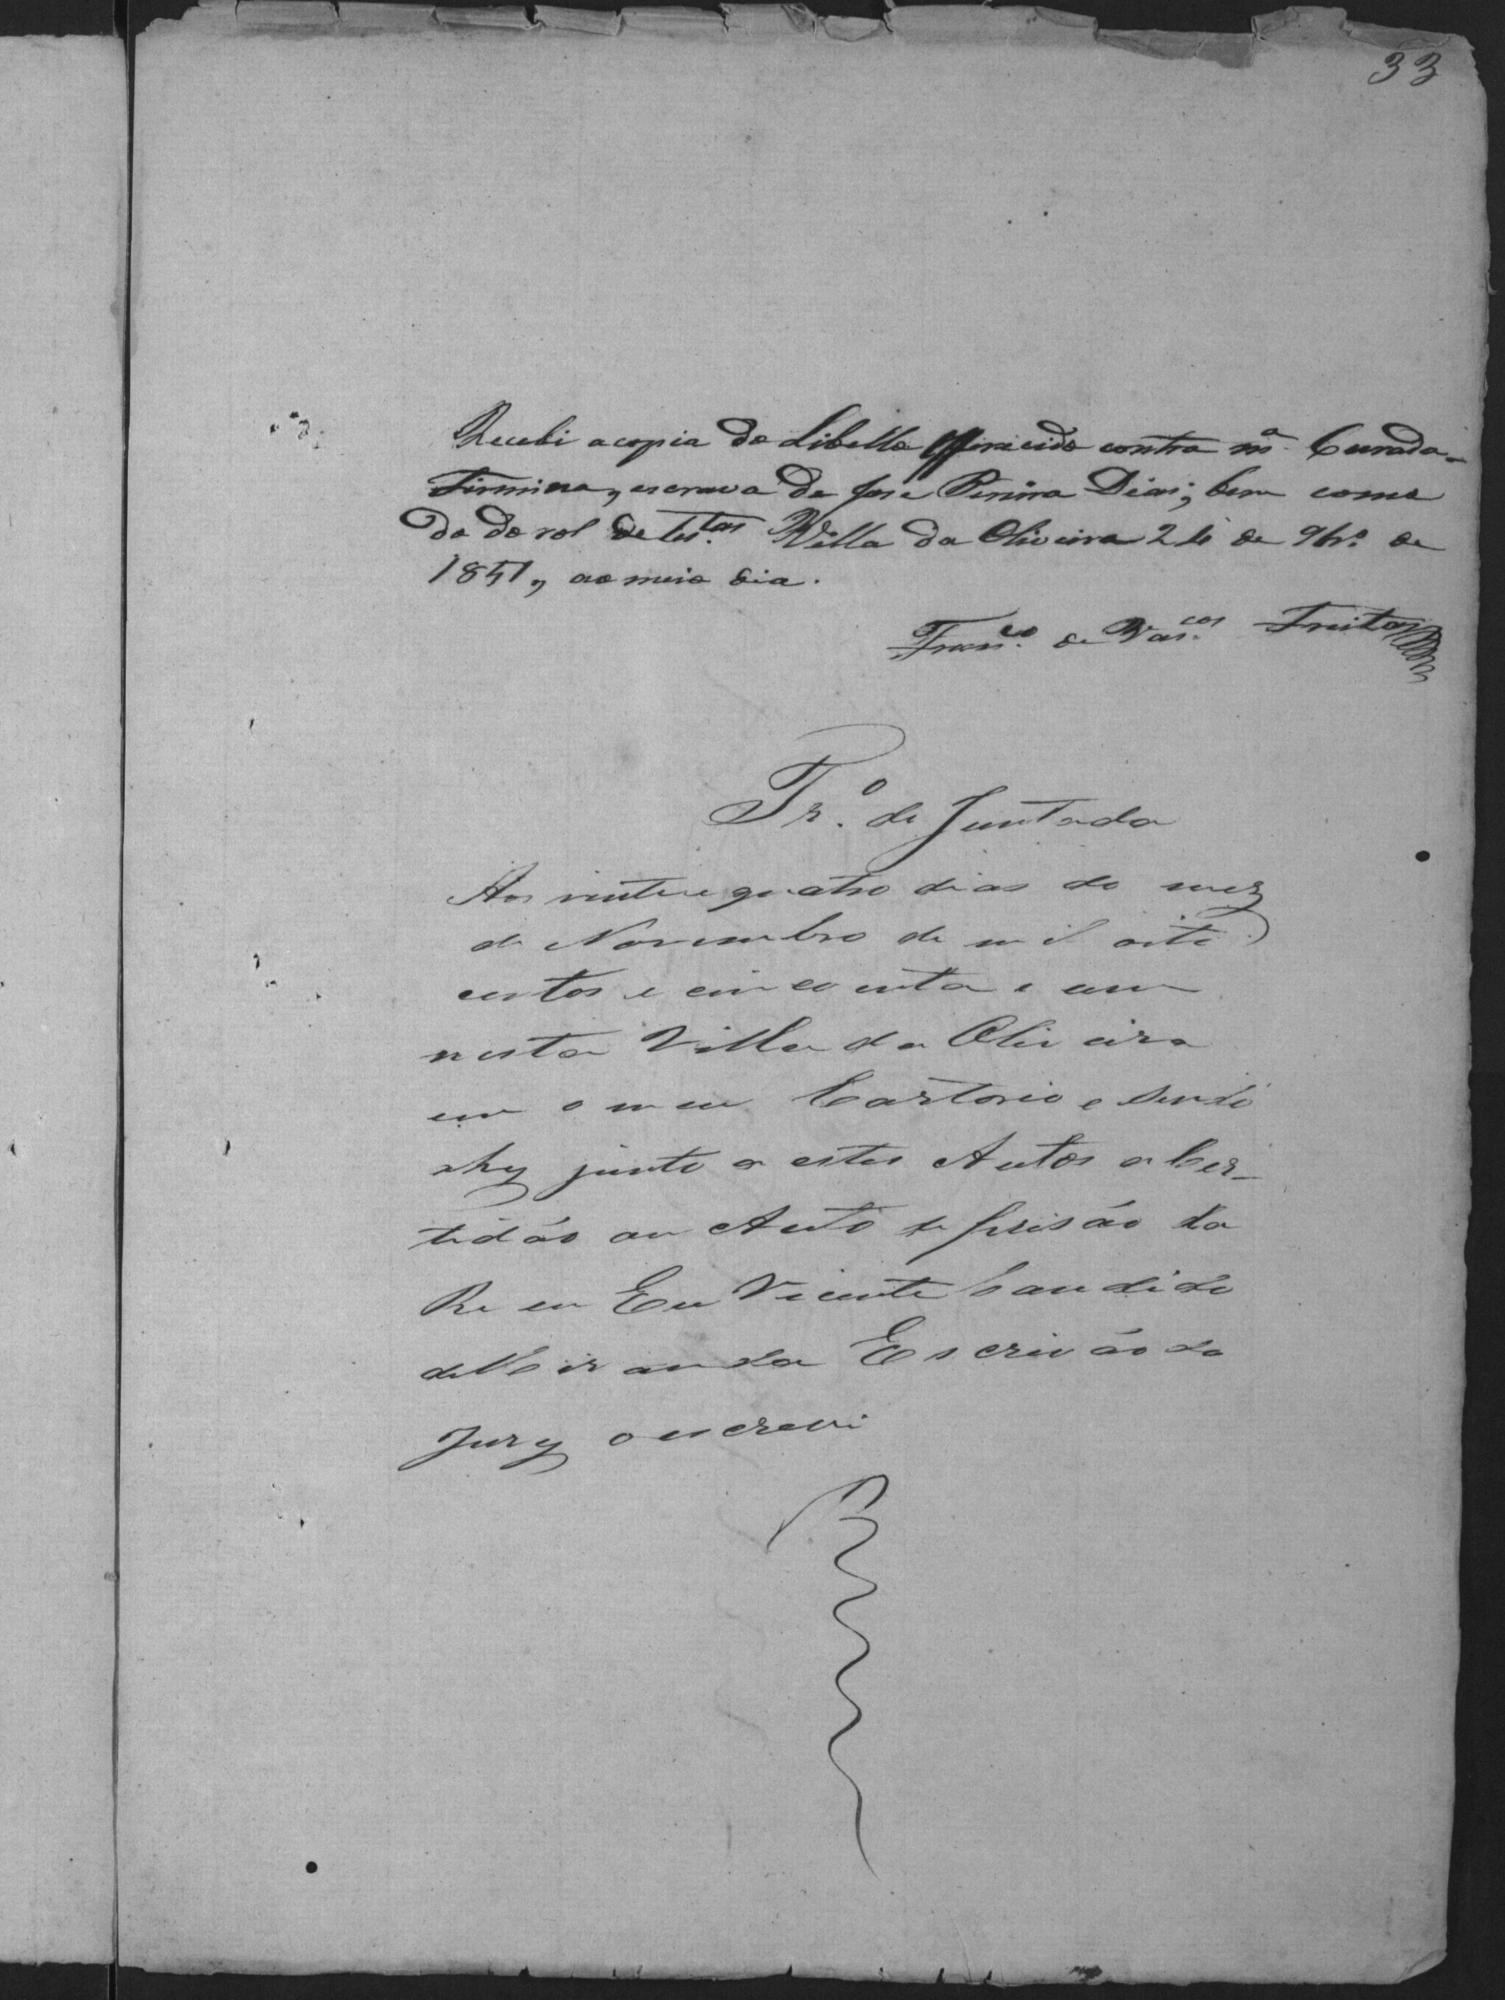 33
Recebi a copia do Libello offerecido contra m.ª Curada-
Firmina, escrava de José Pereira Dias; bem como
da do rol de tes.tas Villa da Oliveira 24 de 9br.º de
1851, ao meio dia.
Fran.co de Vas.cos Freitas
Tr.º de Juntada
Aos vinte e quatro dias do mez
de Novembro de mil oito
centos e cincoenta e um
nesta Villa da Oliveira
em o meu Cartorio e sendo
ahy junto a estes Autos a Cer-
tidão au Auto de prisão da
Re eu Eu Vicente Candido
de Miranda Escrivão do
Jury o escrevi